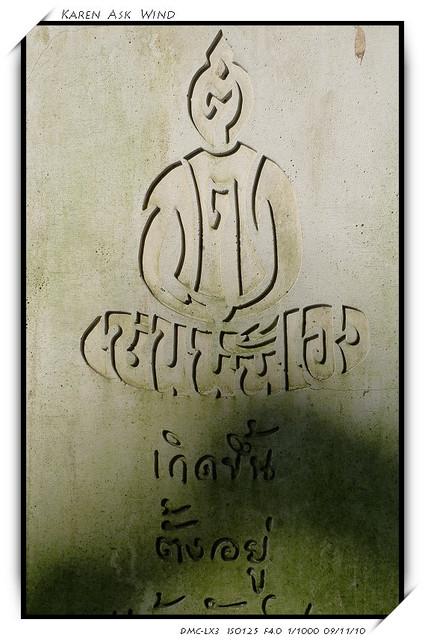 KAREN ASK WIND
เช่นนั้นเอง
เกิดขึ้น
ตั้งอยู่
DMC-LX3 ISO125 F4.0 1/1000 09/11/10